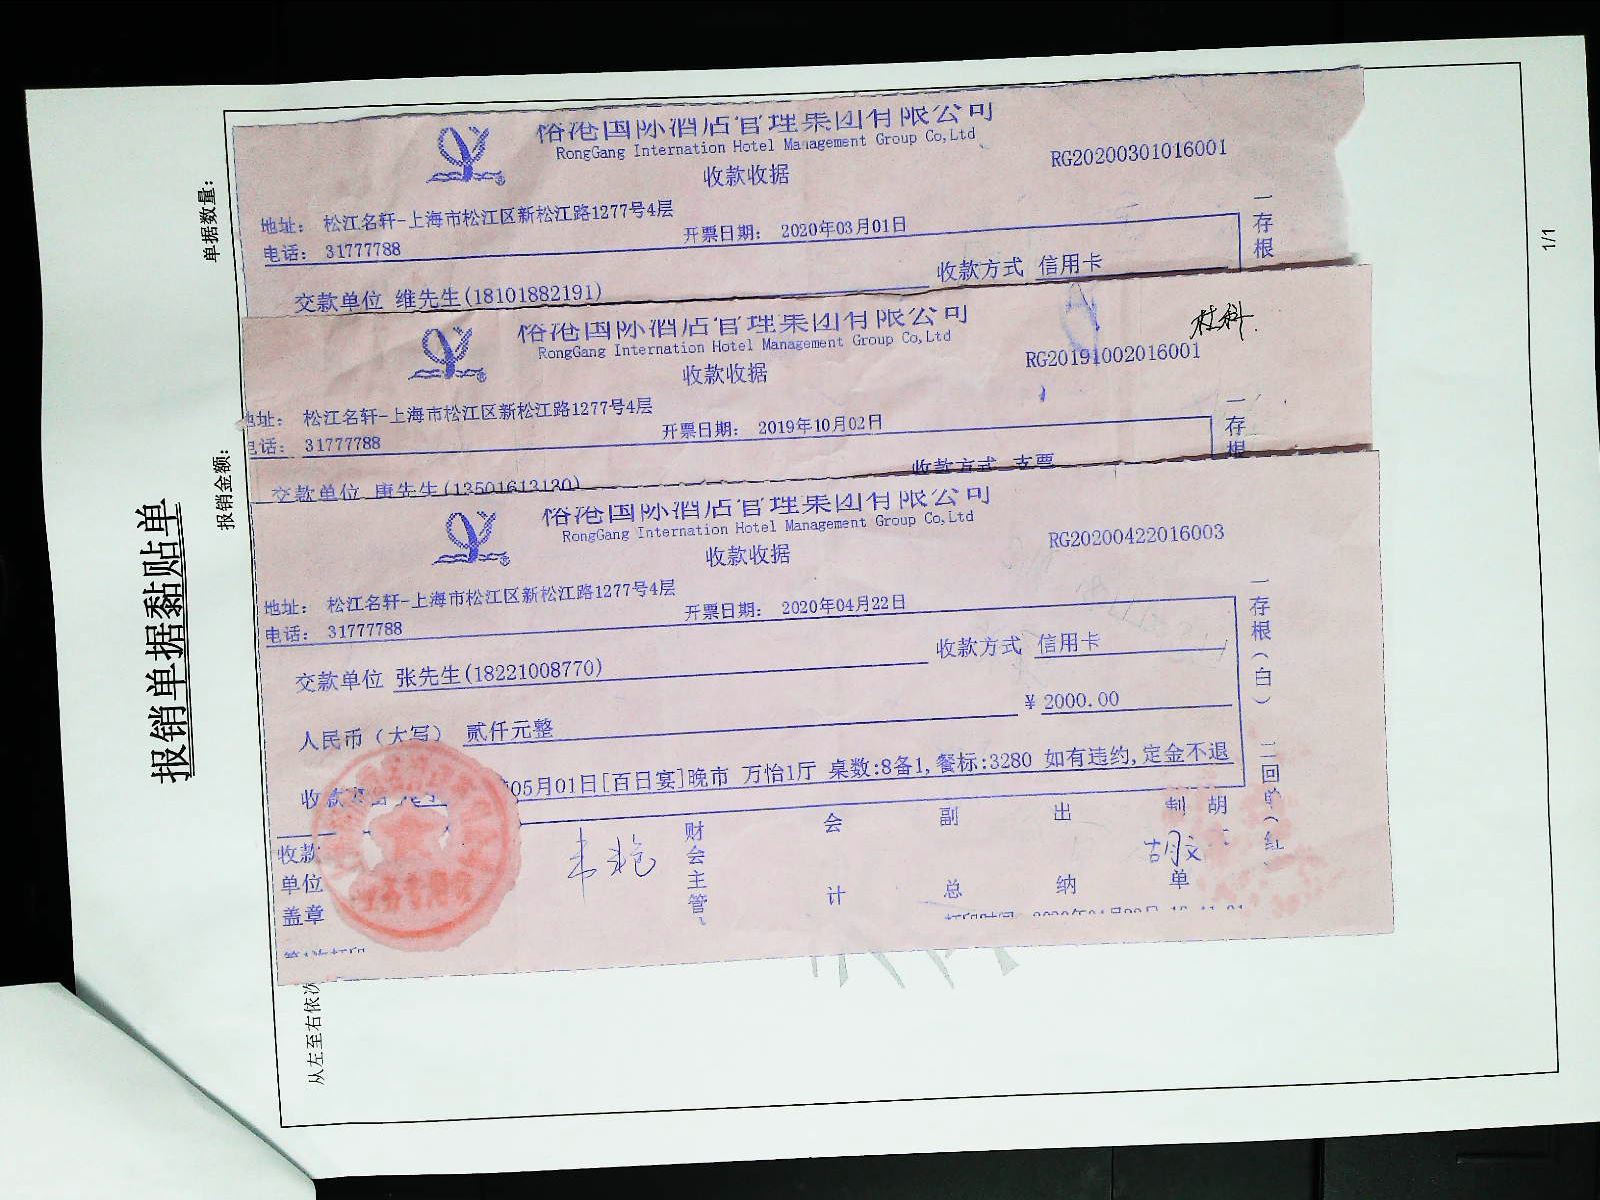 报销单据黏贴单
单据数量：
报销金额：
1/1
俗港国际酒店管理集团有限公司
RongGang Internation Hotel Management Group Co,Ltd
收款收据
RG20200301016001
地址： 松江名轩-上海市松江区新松江路1277号4层
电话： 31777788
开票日期： 2020年03月01日
一存根
收款方式 信用卡
交款单位 维先生(18101882191)
俗港国际酒店管理集团有限公司
RongGang Internation Hotel Management Group Co,Ltd
收款收据
RG20191002016001
地址： 松江名轩-上海市松江区新松江路1277号4层
电话： 31777788
开票日期： 2019年10月02日
一存根
收款方式 支票
交款单位 唐先生(13501613130)
俗港国际酒店管理集团有限公司
RongGang Internation Hotel Management Group Co,Ltd
收款收据
RG20200422016003
地址： 松江名轩-上海市松江区新松江路1277号4层
电话： 31777788
开票日期： 2020年04月22日
一存根(白) 二回单(红)
收款方式 信用卡
交款单位 张先生(18221008770)
¥ 2000.00
人民币（大写） 贰仟元整
05月01日[百日宴]晚市 万怡1厅 桌数:8备1,餐标:3280 如有违约,定金不退
收款单位盖章
财会主管
会计
副总
出纳
制单
胡
从左至右依次